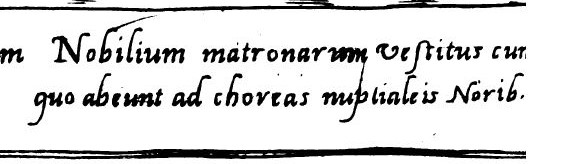 m Nobilium matronarum vestitus cum
quo abeunt ad choreas nuptialeis Norib.